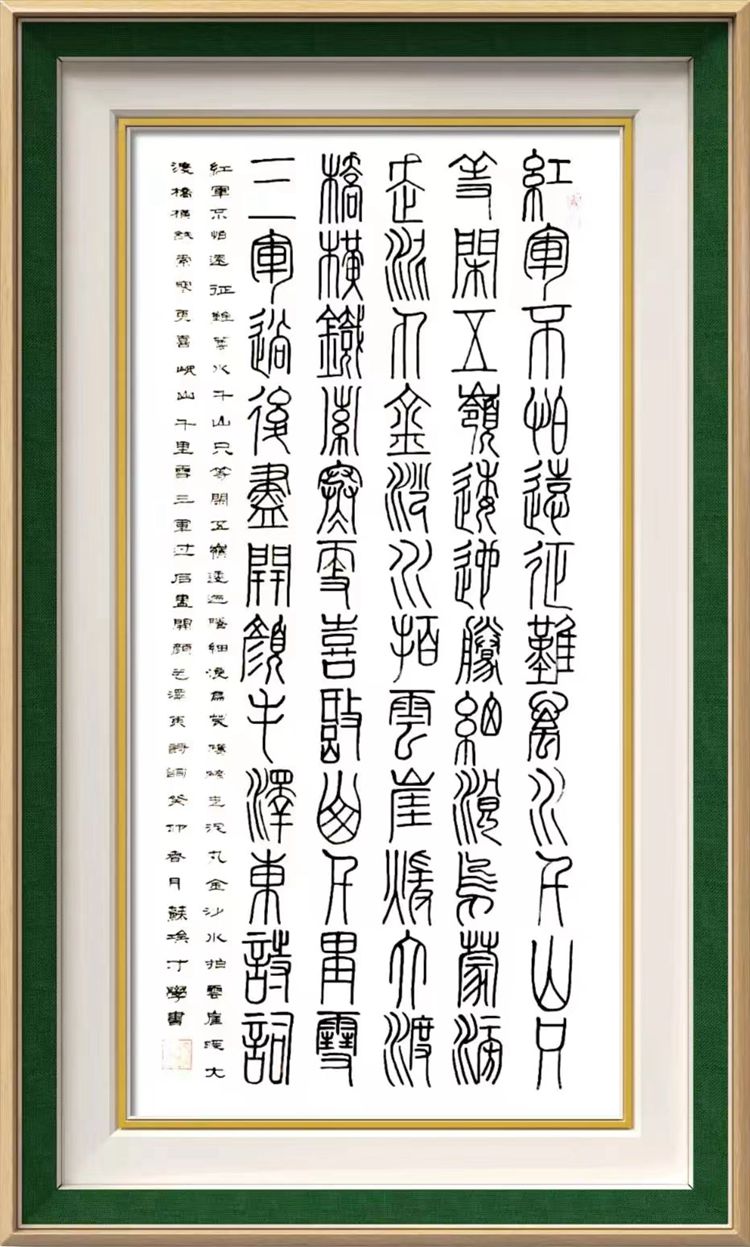 紅軍不怕遠征難萬水千山只
等閑五嶺逶迤騰細浪烏蒙磅
走泥丸金沙水拍雲崖暖大渡
橋橫鐵索寒更喜岷山千里雪
三軍過後盡開顏毛澤東詩詞
紅軍不怕遠征難萬水千山只等閑五嶺逶迤騰細浪烏蒙磅礴走泥丸金沙水拍雲崖暖大
渡橋橫鐵索寒更喜岷山千里雪三軍过后盡開顏毛澤東詩詞癸卯春月蘇才學書